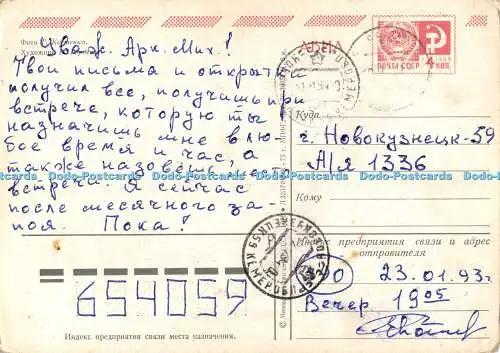 АВИА
ПОЧТА СССР
4 КОП.
Уваж. Арк. Мих.!
Твои письма и открытки
получил все, получишь при
встрече, которую ты
назначишь мне в лю-
бое время и час, а
также назовёшь место
встречи. Я сейчас
после месячного за-
поя. Пока!
Куда
г. Новокузнецк-59
А/Я 1336
Кому
Индекс предприятия связи и адрес
отправителя
23.01.93г
Вечер 19 05
654059
Индекс предприятия связи места назначения.
Dado-Postcards Dado-Postcards Dado-Postcards Dado-Postcards Dado-Postcards